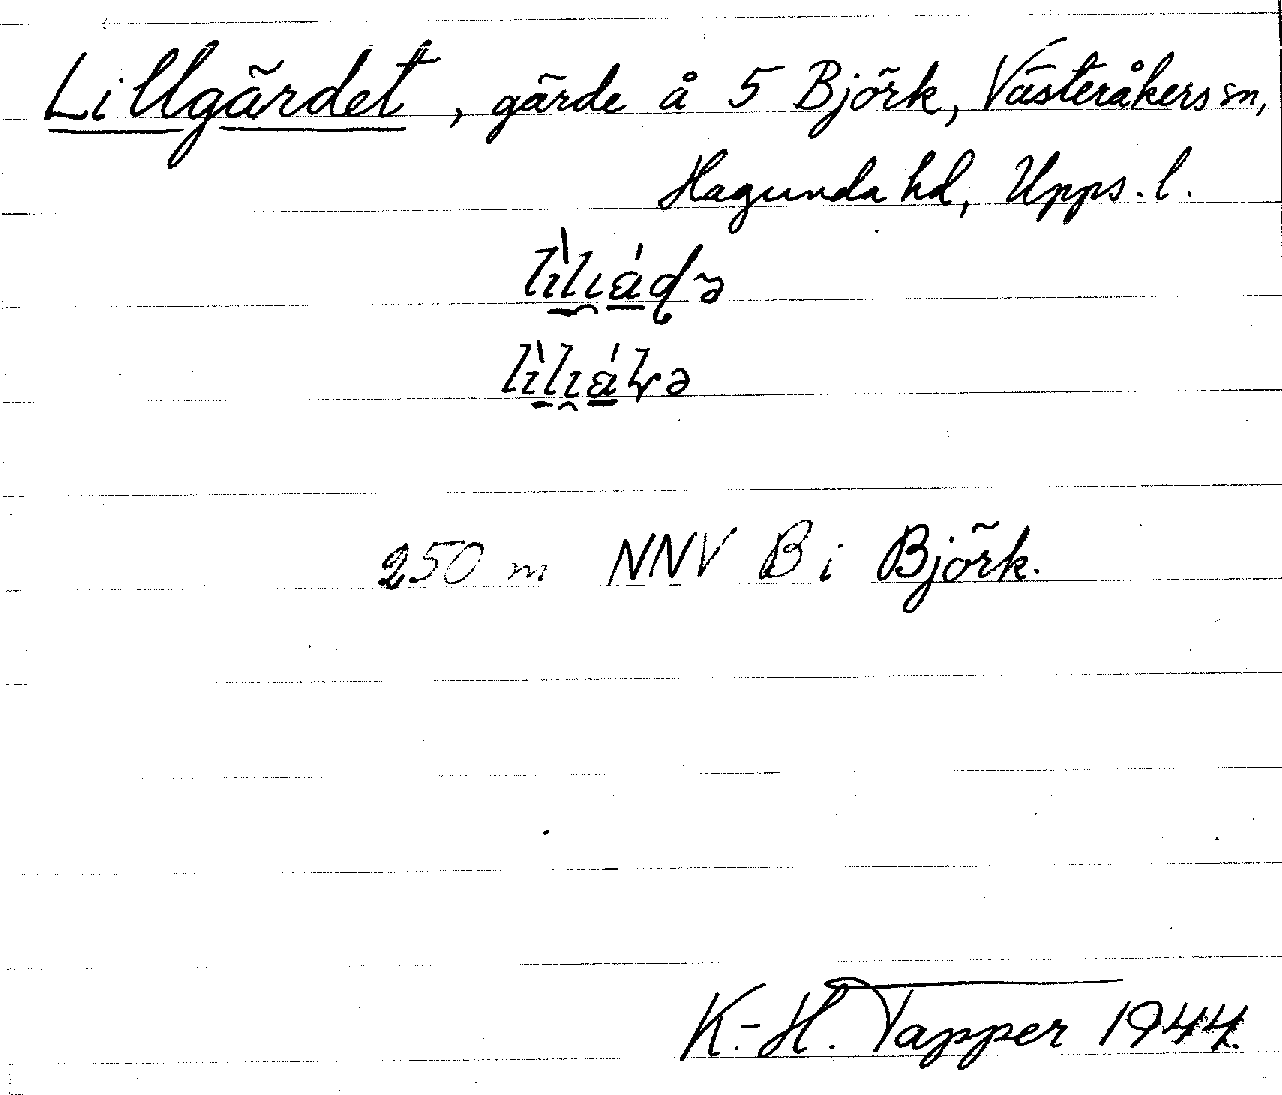 Lillgärdet, gärde å 5 Björk, Västeråkers sn,
Hagunda hd, Upps. l.
250 m NNV B i Björk.
K.-H. Tapper 1944.